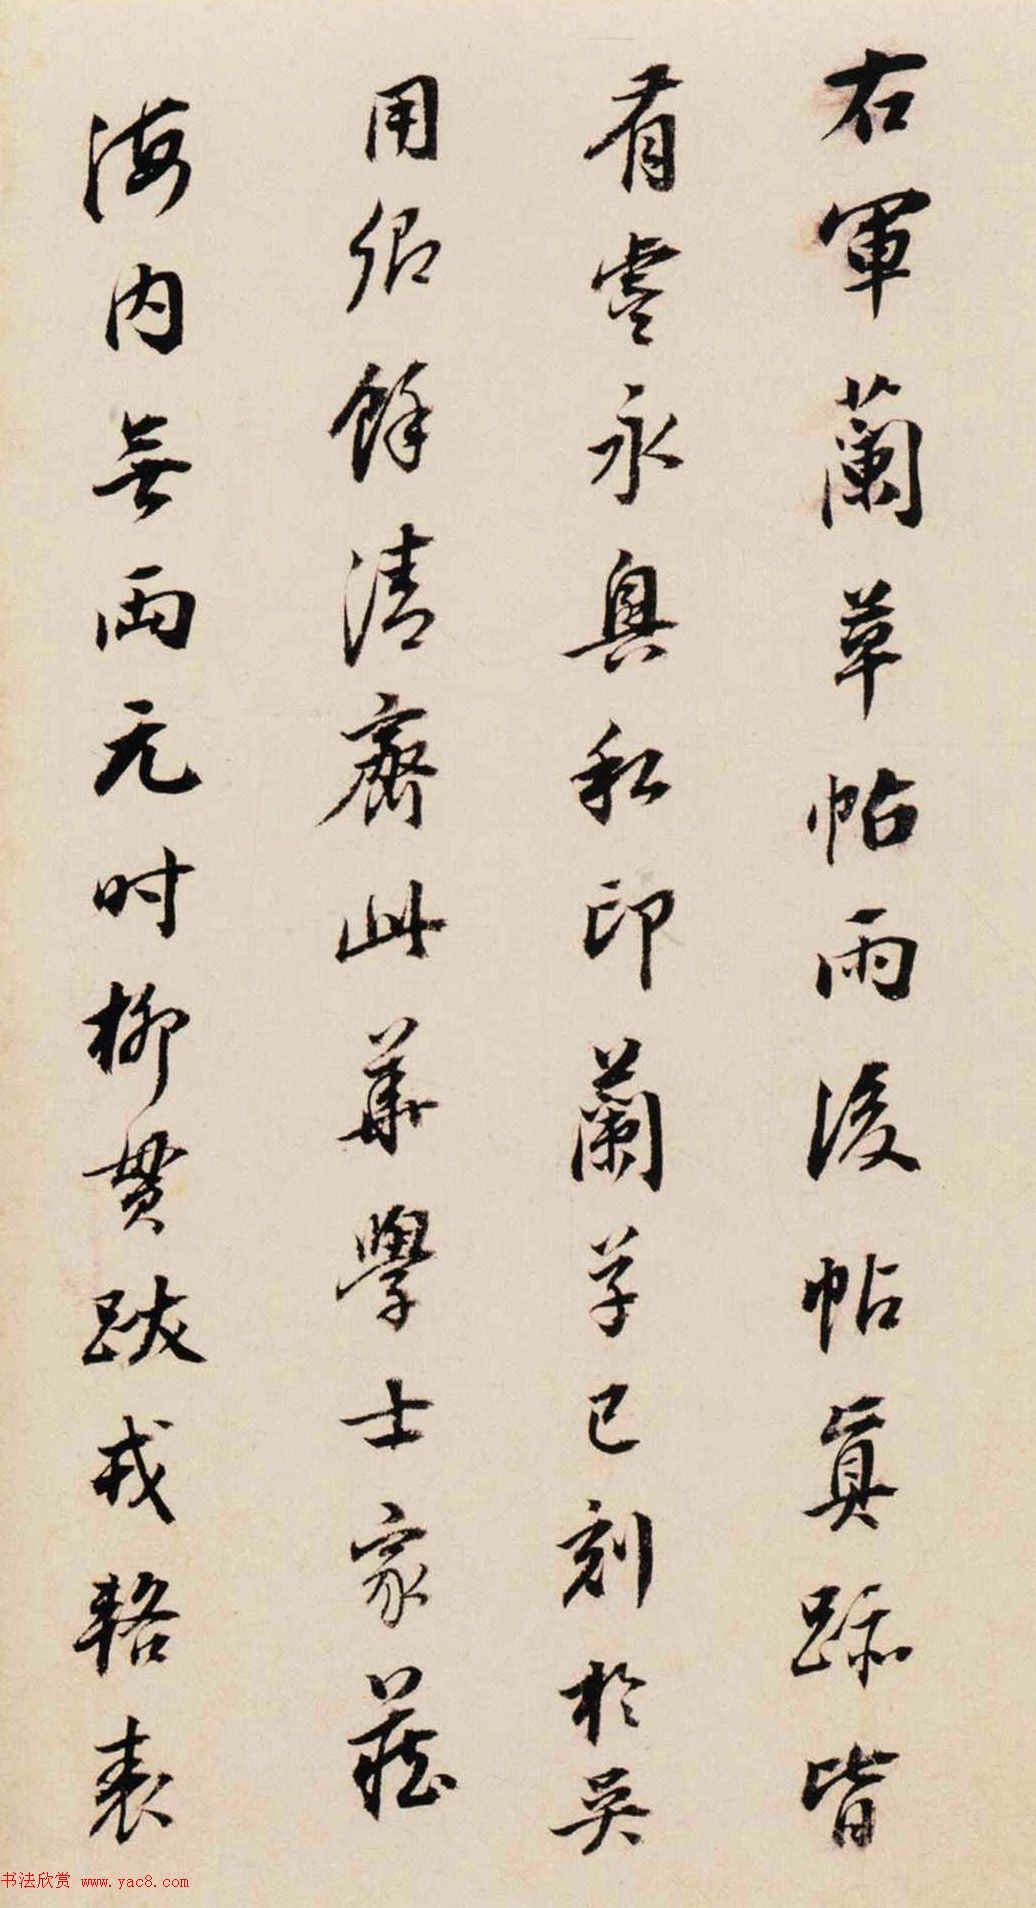 右軍蘭草帖雨後帖真跡皆
有虞永興私印蘭草已刻於吳
用卿餘清齋此華學士家藏
海内無兩元時柳貫跋戎輅表
书法欣赏 www.yac8.com